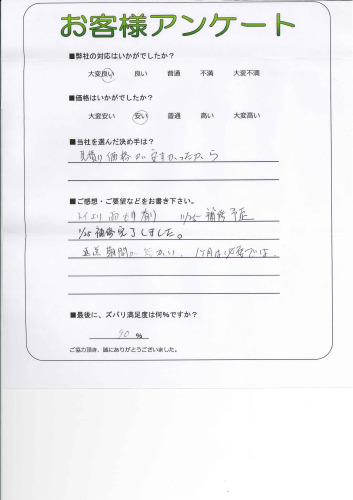 お客様アンケート
■弊社の対応はいかがでしたか?
大変良い 良い 普通 不満 大変不満
■価格はいかがでしたか?
大変安い 安い 普通 高い 大変高い
■当社を選んだ決め手は?
見積り価格が安かったから
■ご感想・ご要望などをお書き下さい。
トイレ 雨 有り 11/25 補修予定
11/25 補修完了しました。
期間が 1ヶ月は必要では
■最後に、ズバリ満足度は何%ですか?
90 %
ご協力頂き、誠にありがとうございました。